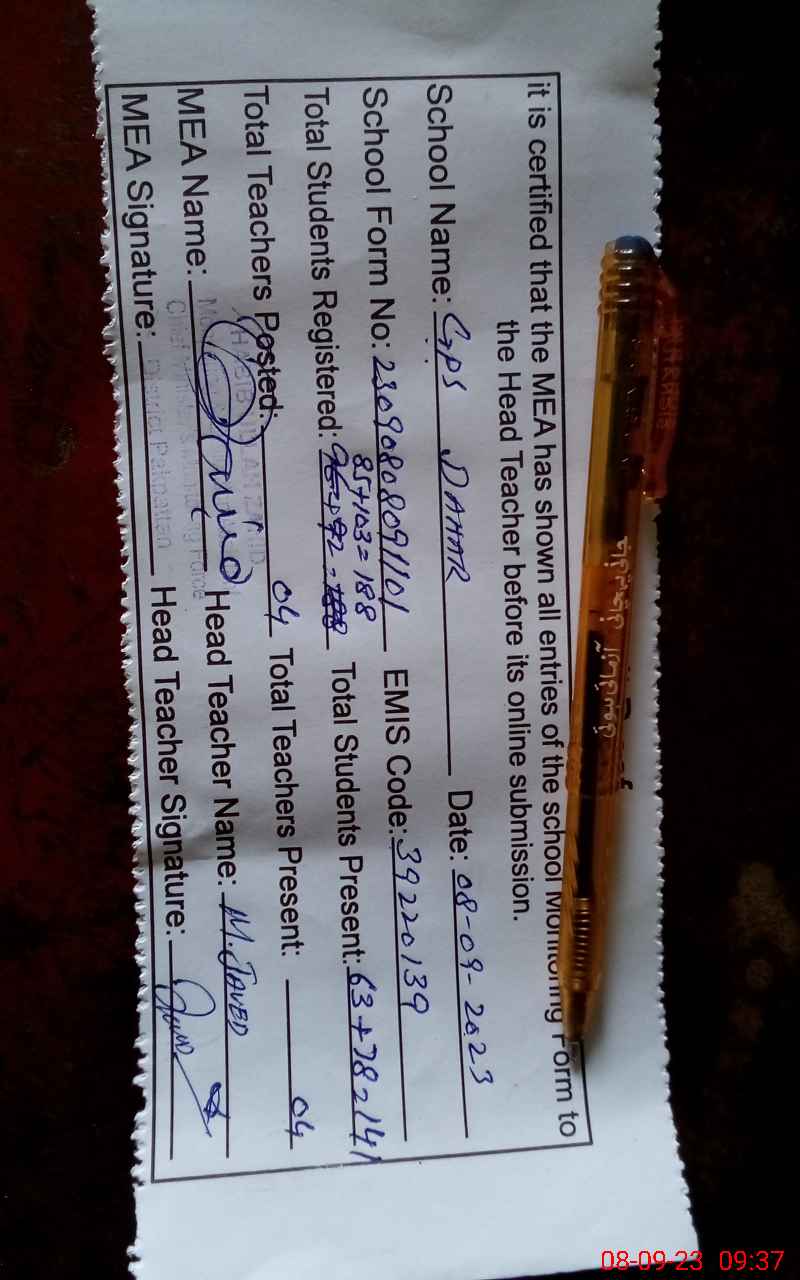 it is certified that the MEA has shown all entries of the school Monitoring Form to
the Head Teacher before its online submission.
School Name: GPS DAHAR Date: 08-09-2023
School Form No: 23090808091101 EMIS Code: 39220139
85+103=188
Total Students Registered: 96+92=188 Total Students Present: 63+78=141
Total Teachers Posted: 04 Total Teachers Present: 04
MEA Name: Head Teacher Name: M. JAVED
MEA Signature: Head Teacher Signature:
District Pakpattan
08-09-23 09:37